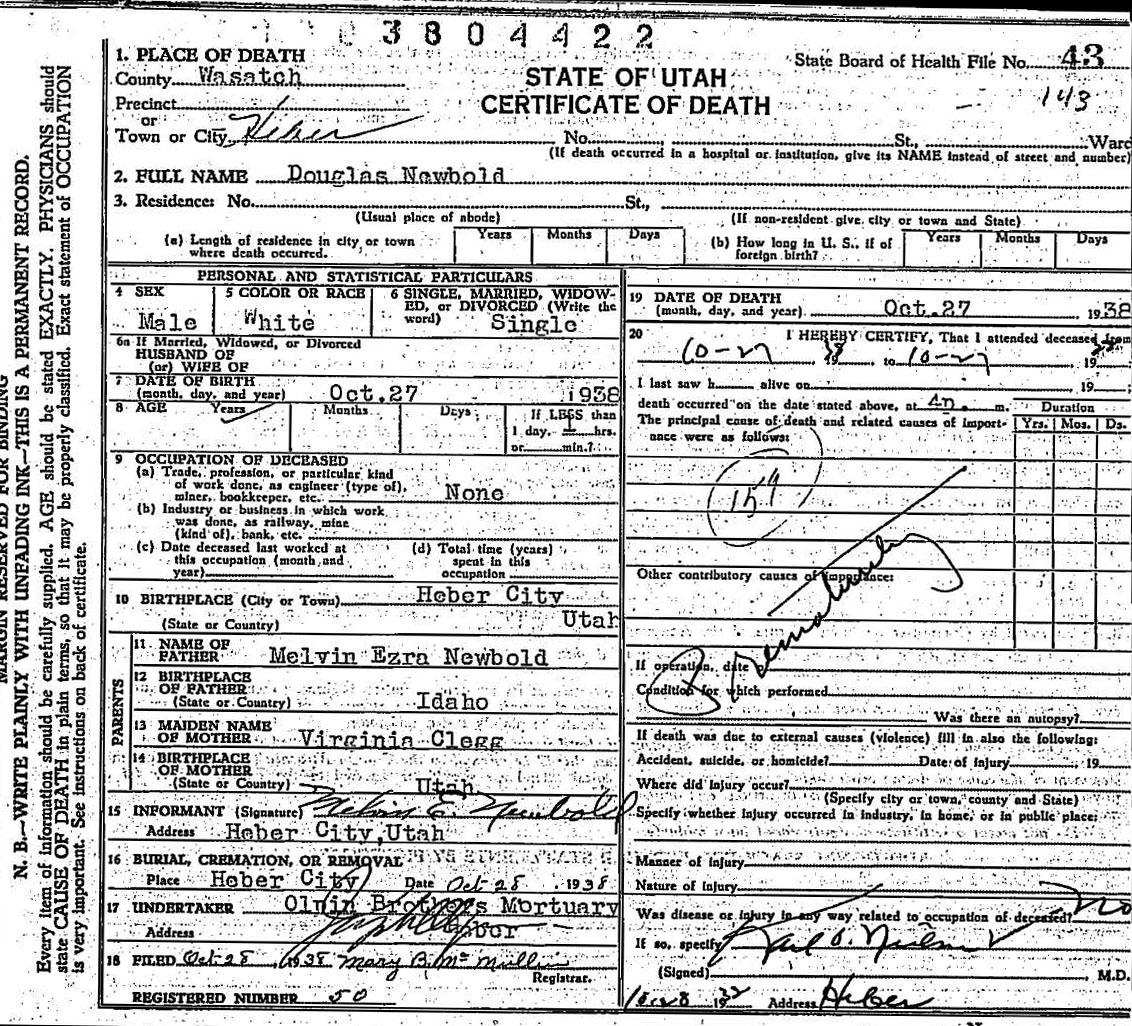 3804422
State Board of Health File No. 43
143
STATE OF UTAH
CERTIFICATE OF DEATH
1. PLACE OF DEATH
County Wasatch
Precinct
or
Town or City Heber No. St., Ward
(If death occurred in a hospital or institution, give its NAME instead of street and number)
2. FULL NAME Douglas Newbold
3. Residence: No. St.,
(Usual place of abode) (If non-resident give city or town and State)
(a) Length of residence in city or town where death occurred. Years Months Days
(b) How long in U. S., if of foreign birth? Years Months Days
PERSONAL AND STATISTICAL PARTICULARS
4 SEX
Male
5 COLOR OR RACE
White
6 SINGLE, MARRIED, WIDOW-
ED, or DIVORCED (Write the
word) Single
6a If Married, Widowed, or Divorced
HUSBAND OF
(or) WIFE OF
7 DATE OF BIRTH
(month, day, and year) Oct.27 1938
8 AGE Years Months Days If LESS than
1 day, 1 hrs.
or min.?
9 OCCUPATION OF DECEASED
(a) Trade, profession, or particular kind
of work done, as engineer (type of),
miner, bookkeeper, etc. None
(b) Industry or business in which work
was done, as railway, mine
(kind of), bank, etc.
(c) Date deceased last worked at
this occupation (month and
year)
(d) Total time (years)
spent in this
occupation
10 BIRTHPLACE (City or Town) Heber City
(State or Country) Utah
PARENTS
11 NAME OF
FATHER Melvin Ezra Newbold
12 BIRTHPLACE
OF FATHER
(State or Country) Idaho
13 MAIDEN NAME
OF MOTHER Virginia Clegg
14 BIRTHPLACE
OF MOTHER
(State or Country) Utah
15 INFORMANT (Signature) Melvin E. Newbold
Address Heber City, Utah
16 BURIAL, CREMATION, OR REMOVAL
Place Heber City Date Oct 28 1938
17 UNDERTAKER Olpin Brothers Mortuary
Address Heber
18 FILED Oct 28, 1938 Mary B. McMullin
Registrar.
REGISTERED NUMBER 50
19 DATE OF DEATH
(month, day, and year) Oct.27 1938
20 I HEREBY CERTIFY, That I attended deceased from
10-27 38 to 10-27 19
I last saw h alive on 19 ;
death occurred on the date stated above, at m.
The principal cause of death and related causes of import-
ance were as follows:
Duration
Yrs. Mos. Ds.
159
Prematurity
Other contributory causes of importance:
If operation, date of
Condition for which performed
Was there an autopsy?
If death was due to external causes (violence) fill in also the following:
Accident, suicide, or homicide? Date of injury 19
Where did injury occur?
(Specify city or town, county and State)
Specify whether injury occurred in industry, in home, or in public place:
Manner of injury
Nature of injury
Was disease or injury in any way related to occupation of deceased? no
If so, specify
(Signed) M.D.
Address Heber
MARGIN RESERVED FOR BINDING
N. B.—WRITE PLAINLY WITH UNFADING INK—THIS IS A PERMANENT RECORD.
Every item of information should be carefully supplied. AGE should be stated EXACTLY. PHYSICIANS should
state CAUSE OF DEATH in plain terms, so that it may be properly classified. Exact statement of OCCUPATION
is very important. See instructions on back of certificate.